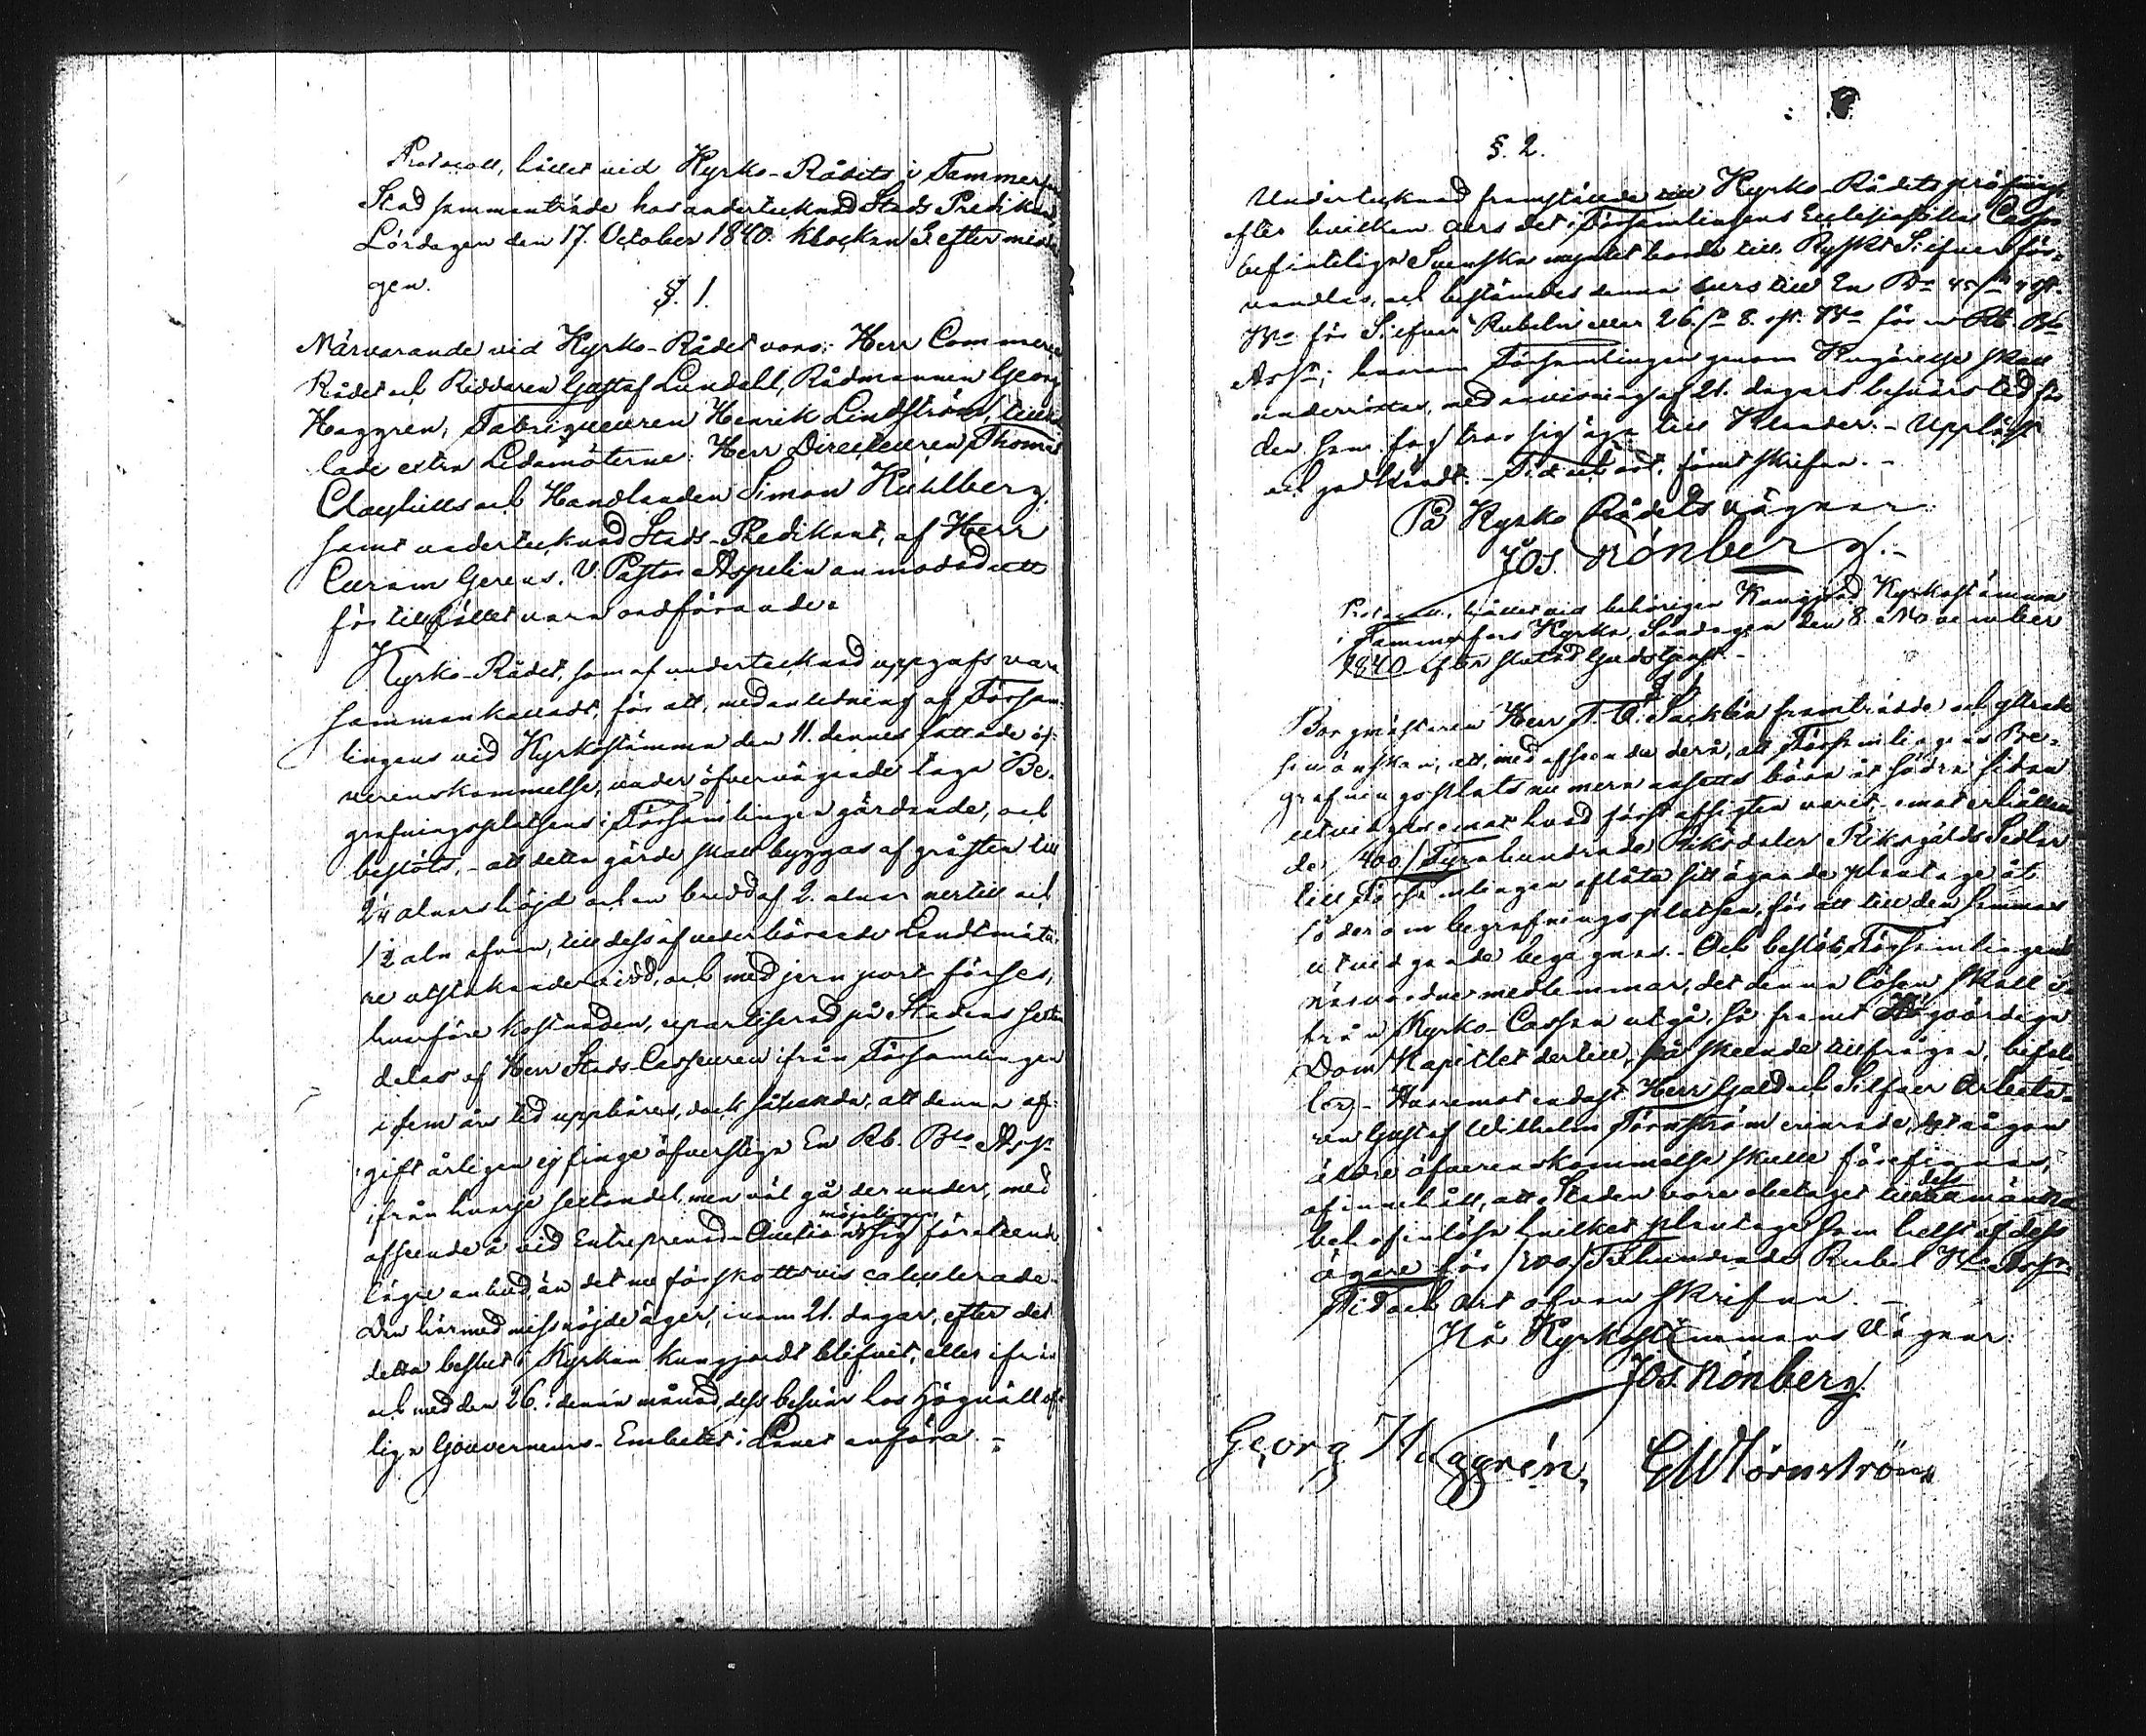 Protocoll, hållet vid Kyrko-Rådets i Tammerfors
Stad sammanträde hos undertecknad Stads Predikant
Lördagen den 17. October 1840. klockan 3 efter midda
gen.
§. 1.
Närvarande vid Kyrko-Rådet voro: Herr Commerce
Rådet och Riddaren Gustaf Lundahl, Rådmannen Georg
Haggrén, Fabriqueuren Henrik Lindström, tillka
lade extra Ledamöterne: Herr Directeuren Thomas
Clayhills och Handlanden Simon Kuhlberg,
samt undertecknad Stads-Predikant, af Herr
Curam Gerens, V. Pastor Aspelin anmodad att
för tillfället vara ordförande.
Kyrko-Rådet, som af undertecknad uppgafs vara
sammankalladt, för att, med anledning af Försam-
lingens vid Kyrkostämma den 11. dennes fattade öf-
verenskommelse, under öfvervägande taga Be-
grafningsplatsens i Församlingen gärdande, och
beslöts, - att detta gärde skall byggas af gråsten till
2¼ alnars höjd och en bredd af 2. alnar nertill och
1½ aln ofvan, till dess af vederbörande Landtmäta-
re utstakande vidd, och med jern port förses,
hvarföre kostnaden, repartiserad på Stadens hemman
delas af Herr Stads-Casseuren ifrån Församlingen
i fem års tid uppbäres, dock sålunda, att denna af-
gift årligen ej finge öfverstiga En Rb. Bco Ass.
ifrån hvarje hemmandel, men väl gå derunder, med
afseende å vid Entreprenad-Auction sig möjeligen företeende
lägre anbud, än det nu förskottsvis calculerade.
Den härmed missnöjde äger, inom 21. dagar, efter det
detta beslut i Kyrkan kungjordt blifvit, eller ifrån
och med den 26. i denna månad, dess besvär hos Högvällof-
lige Gouverneurs-Embetet i Länet anföra. -
§. 2.
Undertecknad framställde till Kyrko-Rådets pröfning
efter hvilken curs det i Församlingens Ecclesiastika Cassa
befintliga Svenska myntet borde till Ryskt Silfver för-
vandlas, och bestämdes denna curs till En
för Silfver Rubeln eller 26. 8.
Ass; hvarom Församlingen genom Kungörelse skall
underrättas, med anvisning af 21. dagars besvärs tid för
den som sig äga till Klander. - Uppläst
och godkändt. - Tid och ort, som skrifna. -
På Kyrko Rådets vägnar
Jos. Rönberg. -
Protocoll, hållet vid behörigen Kungjord Kyrkostämma
i Tammerfors Kyrka, Söndagen den 8. November
1840 efter slutad Gudstjenst. -
§ 1.
Borgmästaren Herr F. O. Sacklén framträdde och yttrade
sin önskan, att, med afseende derå, att Församlingens Be-
grafningsplats numera ansetts böra åt södra sidan
utvidgas emot hvad först afsigten varit, emot erhållan-
de /400/ Fyrahundrade Riksdaler Riksgälds Sedlar
till Församlingen aflåta sitt ägande plantage åt
söder om begrafningsplatsen, för att till den sammas
utvidgande begagnas. - Och beslöts, Församlingens
närvordne medlemmar, det denna lösen skall i-
från Kyrko-Cassan utgå, så framt Högvördiga
Dom Kapitlet dertill, på skeende tillfrågan, bifal-
ler. - Häremot endast Herr Guld och Silfver Arbeta-
ren Gustaf Wilhelm Törnström erinrade, det någon
äldre öfverenskommelse skulle förefinnas,
af innehåll, att Staden vore obetaget till dess
behof inlösa hvilket plantage som helst af dess
ägare för /200/ Tvåhundrade Rubel Bco Ass.
Tid och ort ofvan skrifne. -
På Kyrkostämmans Vägnar
Jos. Rönberg.
Georg Haggrén, GW Törnström